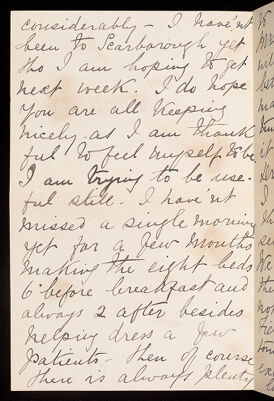 considerably - I have'nt
been to Scarborough yet
tho I am hoping to get
next week. I do hope
you are all keeping
nicely as I am thank
ful to feel myself to be
I am trying to be use-
ful still. I have'nt
missed a single morning
yet for a few months
making the eight beds
6 before breakfast and
always 2 after besides
helping dress a few
patients - then of course
there is always plenty